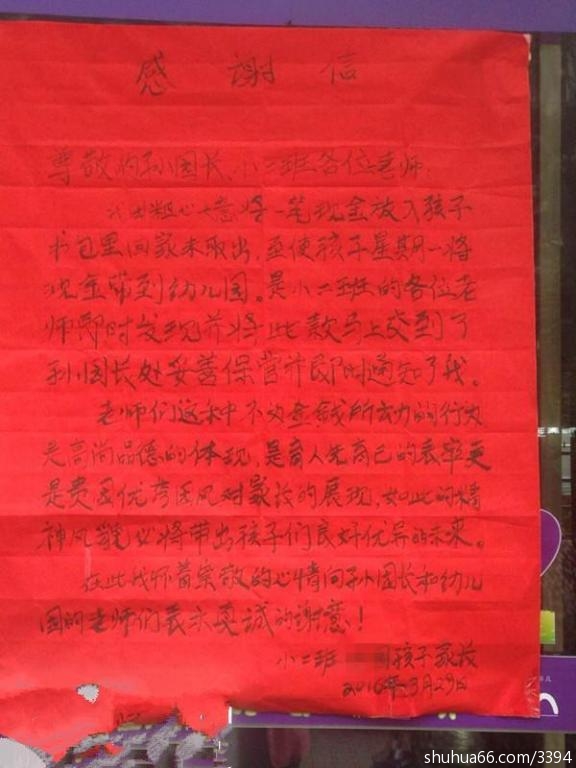 感谢信
尊敬的孙园长、小二班各位老师:
我由粗心大意将一笔现金放入孩子
书包里回家未取出,至使孩子星期一将
现金带到幼儿园。是小二班的各位老
师即时发现并将此款马上交到了
孙园长处妥善保管并即时通知了我。
老师们这种不为金钱所动力的行为
是高尚品德的体现,是育人先育己的表率更
是贵园优秀园风对家长的展现,如此的精
神风貌必将带出孩子们良好优异的未来。
在此我怀着崇敬的心情向孙园长和幼儿
园的老师们表示真诚的谢意!
小二班 孩子家长
2016年3月29日
shuhua66.com/3394